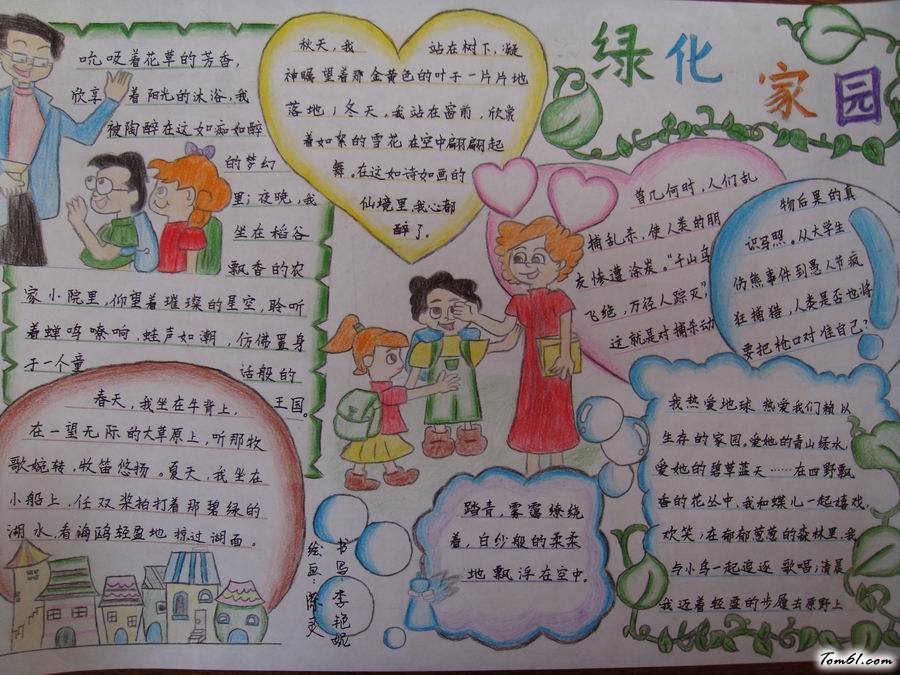 绿化家园
吮吸着花草的芳香,
欣享着阳光的沐浴,我
被陶醉在这如痴如醉
的梦幻
里;夜晚,我
坐在稻谷
飘香的农
家小院里,仰望着璀璨的星空,聆听
着蝉鸣嘹响,蛙声如潮,仿佛置身
于一个童 话般的
王国。
秋天,我 站在树下,凝
神瞩望着那金黄色的叶子一片片地
落地;冬天,我站在窗前,欣赏
着如絮的雪花在空中翩翩起
舞。在这如诗如画的
仙境里,我心都
醉了。
曾几何时,人们乱
捕乱杀,使人类的朋
友惨遭涂炭。“千山鸟
飞绝,万径人踪灭”,
这就是对捕杀动
物后果的真
识写照。从大学生
伤熊事件到愚人节疯
狂捕猎,人类是否也将
要把枪口对准自己?
春天,我坐在牛背上,
在一望无际的大草原上,听那牧
歌婉转,牧笛悠扬。夏天,我坐在
小船上,任双桨拍打着那碧绿的
湖水,看海鸥轻盈地掠过湖面。
书写:李艳妮
绘画:陈灵
踏青,雾霭缭绕
着,白纱般的柔柔
地飘浮在空中。
我热爱地球 热爱我们赖以
生存的家园。爱她的青山绿水,
爱她的碧草蓝天……在四野飘
香的花丛中,我和蝶儿一起嬉戏,
欢笑;在郁郁葱葱的森林里,我
与小鸟一起追逐 歌唱;清晨
我迈着轻盈的步履去原野上
Tom61.com